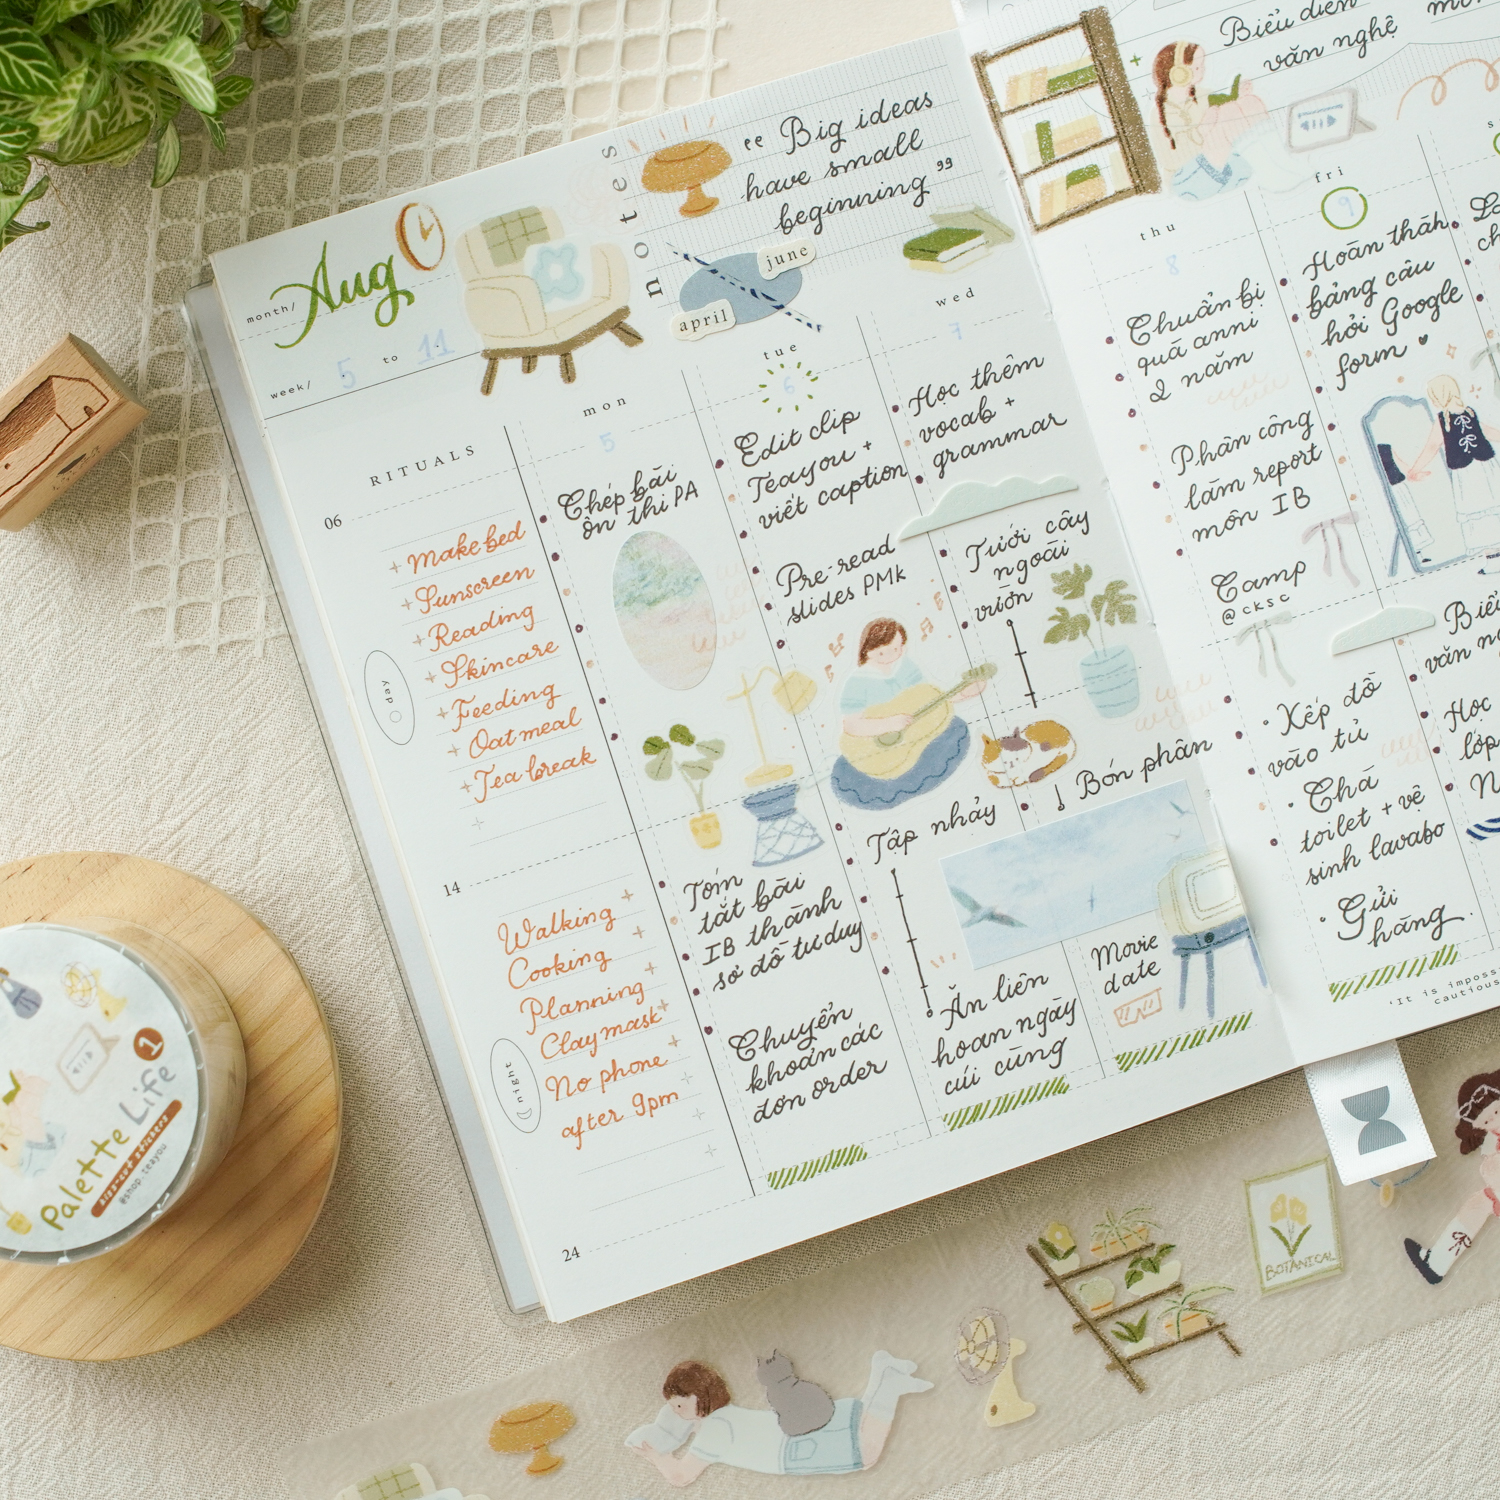 month/ Aug
week/ 5 to 11
notes
“ Big ideas
have small
beginning ”
june
april
RITUALS
06
+ Make bed
+ Sunscreen
+ Reading
+ Skincare
+ Feeding
+ Oatmeal
+ Tea break
day
14
Walking
Cooking
Planning
Clay mask
No phone
after 9pm
night
24
mon
5
Chép bài
ôn thi PA
Tóm
tắt bài
IB thành
sơ đồ tư duy
Chuyển
khoản các
đơn order
tue
6
Edit clip
Teayou +
viết caption
Pre-read
slides PMk
Tập nhảy
Ăn liên
hoan ngày
cúi cùng
wed
7
Học thêm
vocab +
grammar
Tưới cây
ngoài
vườn
Bón phân
Movie
date
Biểu diễn
văn nghệ
thu
8
Chuẩn bị
quà anni
2 năm
Phân công
làm report
môn IB
Camp
@cksc
• Xếp đồ
vào tủ
• Chà
toilet + vệ
sinh lavabo
• Gửi
hàng.
fri
9
Hoàn thành
bảng câu
hỏi Google
form
Biểu
văn n
Học
lớp
"It is imposs
cautious
1
Palette Life
@shop.teayou
BOTANICAL